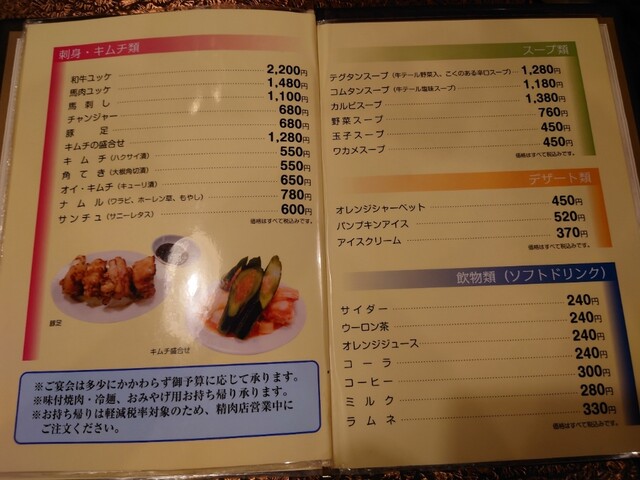 刺身・キムチ類
和牛ユッケ 2,200円
馬肉ユッケ 1,480円
馬刺し 1,100円
チャンジャー 680円
豚足 680円
キムチの盛合せ 1,280円
キムチ(ハクサイ漬) 550円
角てき(大根角切漬) 550円
オイ・キムチ(キューリ漬) 650円
ナムル(ワラビ、ホーレン草、もやし) 780円
サンチュ(サニーレタス) 600円
価格はすべて税込みです。
豚足
キムチ盛合せ
※ご宴会は多少にかかわらず御予算に応じて承ります。
※味付焼肉・冷麺、おみやげ用お持ち帰り承ります。
※お持ち帰りは軽減税率対象のため、精肉店営業中に
ご注文ください。
スープ類
テグタンスープ(牛テール野菜入、こくのある辛口スープ) 1,280円
コムタンスープ(牛テール塩味スープ) 1,180円
カルビスープ 1,380円
野菜スープ 760円
玉子スープ 450円
ワカメスープ 450円
価格はすべて税込みです。
デザート類
オレンジシャーベット 450円
パンプキンアイス 520円
アイスクリーム 370円
価格はすべて税込みです。
飲物類(ソフトドリンク)
サイダー 240円
ウーロン茶 240円
オレンジジュース 240円
コーラ 240円
コーヒー 300円
ミルク 280円
ラムネ 330円
価格はすべて税込みです。